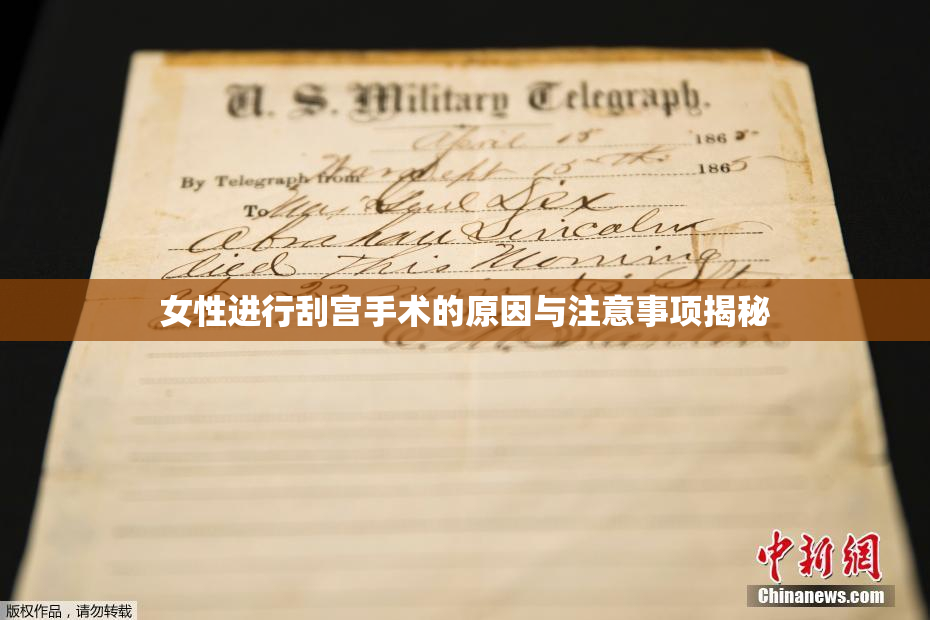 U. S. Military Telegraph.
April 15 1865
By Telegraph from War Dept 15th 1865
To Maj Genl Dix
Abraham Lincoln
died This Morning
at 22 minutes after
女性进行刮宫手术的原因与注意事项揭秘
E. M. Stanton
中新網
Chinanews.com
版权作品，请勿转载